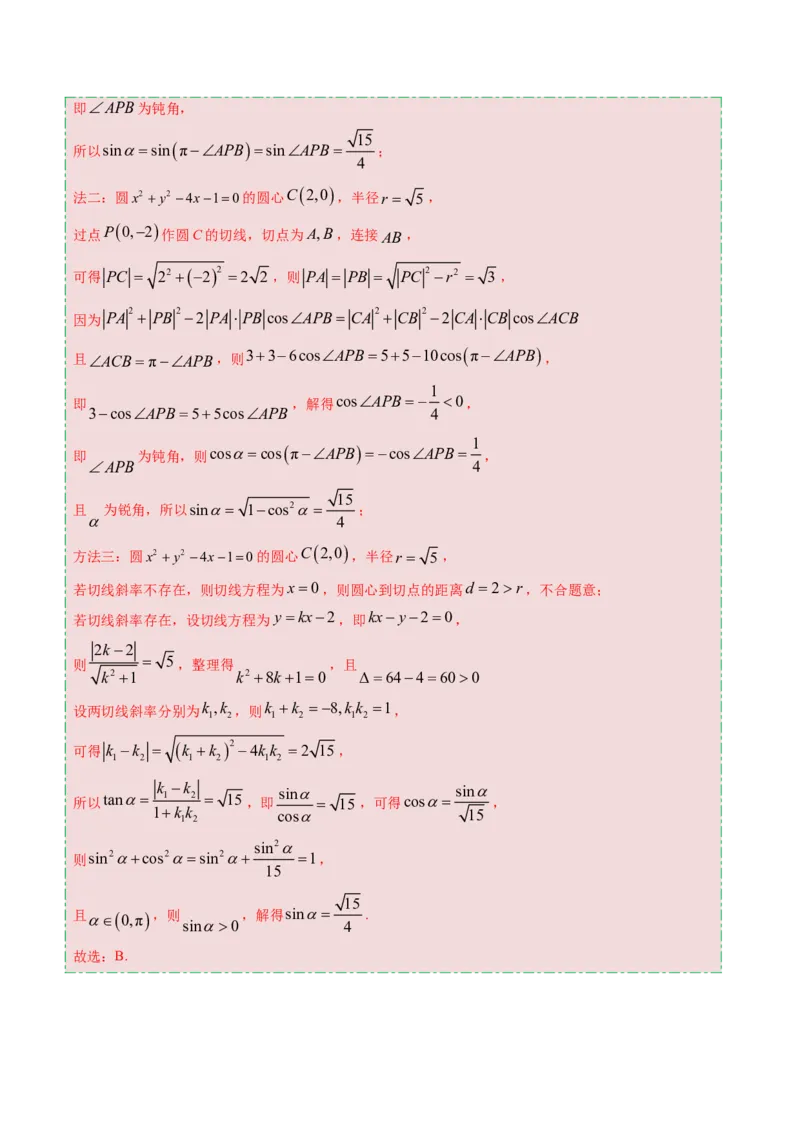 即∠APB为钝角，
所以sinα=sin(π−∠APB)=sin∠APB=√15/4；
法二：圆x²+y²−4x−1=0的圆心C(2,0)，半径r=√5，
过点P(0,−2)作圆C的切线，切点为A,B，连接AB，
可得|PC|=√(2²+(−2)²)=2√2，则|PA|=|PB|=√(|PC|²−r²)=√3，
因为|PA|²+|PB|²−2|PA|·|PB|cos∠APB=|CA|²+|CB|²−2|CA|·|CB|cos∠ACB
且∠ACB=π−∠APB，则3+3−6cos∠APB=5+5−10cos(π−∠APB)，
即3−cos∠APB=5+5cos∠APB，解得cos∠APB=−1/4<0，
即∠APB为钝角，则cosα=cos(π−∠APB)=−cos∠APB=1/4，
且α为锐角，所以sinα=√(1−cos²α)=√15/4；
方法三：圆x²+y²−4x−1=0的圆心C(2,0)，半径r=√5，
若切线斜率不存在，则切线方程为x=0，则圆心到切点的距离d=2>r，不合题意；
若切线斜率存在，设切线方程为y=kx−2，即kx−y−2=0，
则|2k−2|/√(k²+1)=√5，整理得k²+8k+1=0，且Δ=64−4=60>0
设两切线斜率分别为k₁,k₂，则k₁+k₂=−8,k₁k₂=1，
可得|k₁−k₂|=√((k₁+k₂)²−4k₁k₂)=2√15，
所以tanα=|k₁−k₂|/(1+k₁k₂)=√15，即sinα/cosα=√15，可得cosα=sinα/√15，
则sin²α+cos²α=sin²α+sin²α/15=1，
且α∈(0,π)，则sinα>0，解得sinα=√15/4.
故选：B.